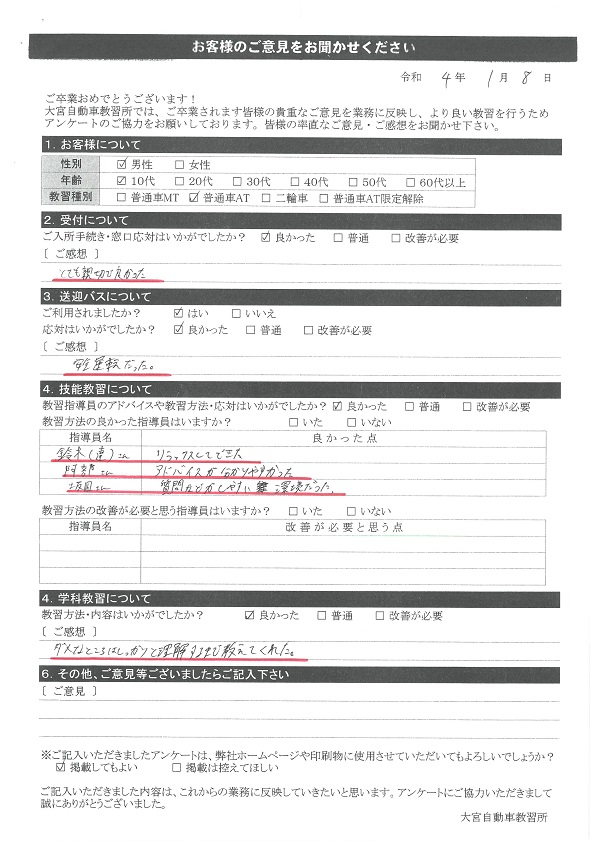 お客様のご意見をお聞かせください
令和 4 年 1 月 8 日
ご卒業おめでとうございます!
大宮自動車教習所では、ご卒業されます皆様の貴重なご意見を業務に反映し、より良い教習を行うため
アンケートのご協力をお願いしております。皆様の率直なご意見・ご感想をお聞かせ下さい。
1. お客様について
性別 ☑ 男性 □ 女性
年齢 ☑ 10代 □ 20代 □ 30代 □ 40代 □ 50代 □ 60代以上
教習種別 □ 普通車MT ☑ 普通車AT □ 二輪車 □ 普通車AT限定解除
2. 受付について
ご入所手続き・窓口応対はいかがでしたか? ☑ 良かった □ 普通 □ 改善が必要
[ ご感想 ]
とても親切で良かった
3. 送迎バスについて
ご利用されましたか? ☑ はい □ いいえ
応対はいかがでしたか? ☑ 良かった □ 普通 □ 改善が必要
[ ご感想 ]
安全運転だった。
4. 技能教習について
教習指導員のアドバイスや教習方法・応対はいかがでしたか? ☑ 良かった □ 普通 □ 改善が必要
教習方法の良かった指導員はいますか? □ いた □ いない
指導員名 良かった点
鈴木(達)さん リラックスしてできた
阿部さん アドバイスが分かりやすかった
坂田さん 質問などがしやすい 環境だった。
教習方法の改善が必要と思う指導員はいますか? □ いた □ いない
指導員名 改善が必要と思う点
4. 学科教習について
教習方法・内容はいかがでしたか? ☑ 良かった □ 普通 □ 改善が必要
[ ご感想 ]
ダメなところはしっかりと理解するまで教えてくれた。
6. その他、ご意見等ございましたらご記入下さい
[ ご意見 ]
※ご記入いただきましたアンケートは、弊社ホームページや印刷物に使用させていただいてもよろしいでしょうか?
☑ 掲載してもよい □ 掲載は控えてほしい
ご記入いただきました内容は、これからの業務に反映していきたいと思います。アンケートにご協力いただきまして
誠にありがとうございました。
大宮自動車教習所